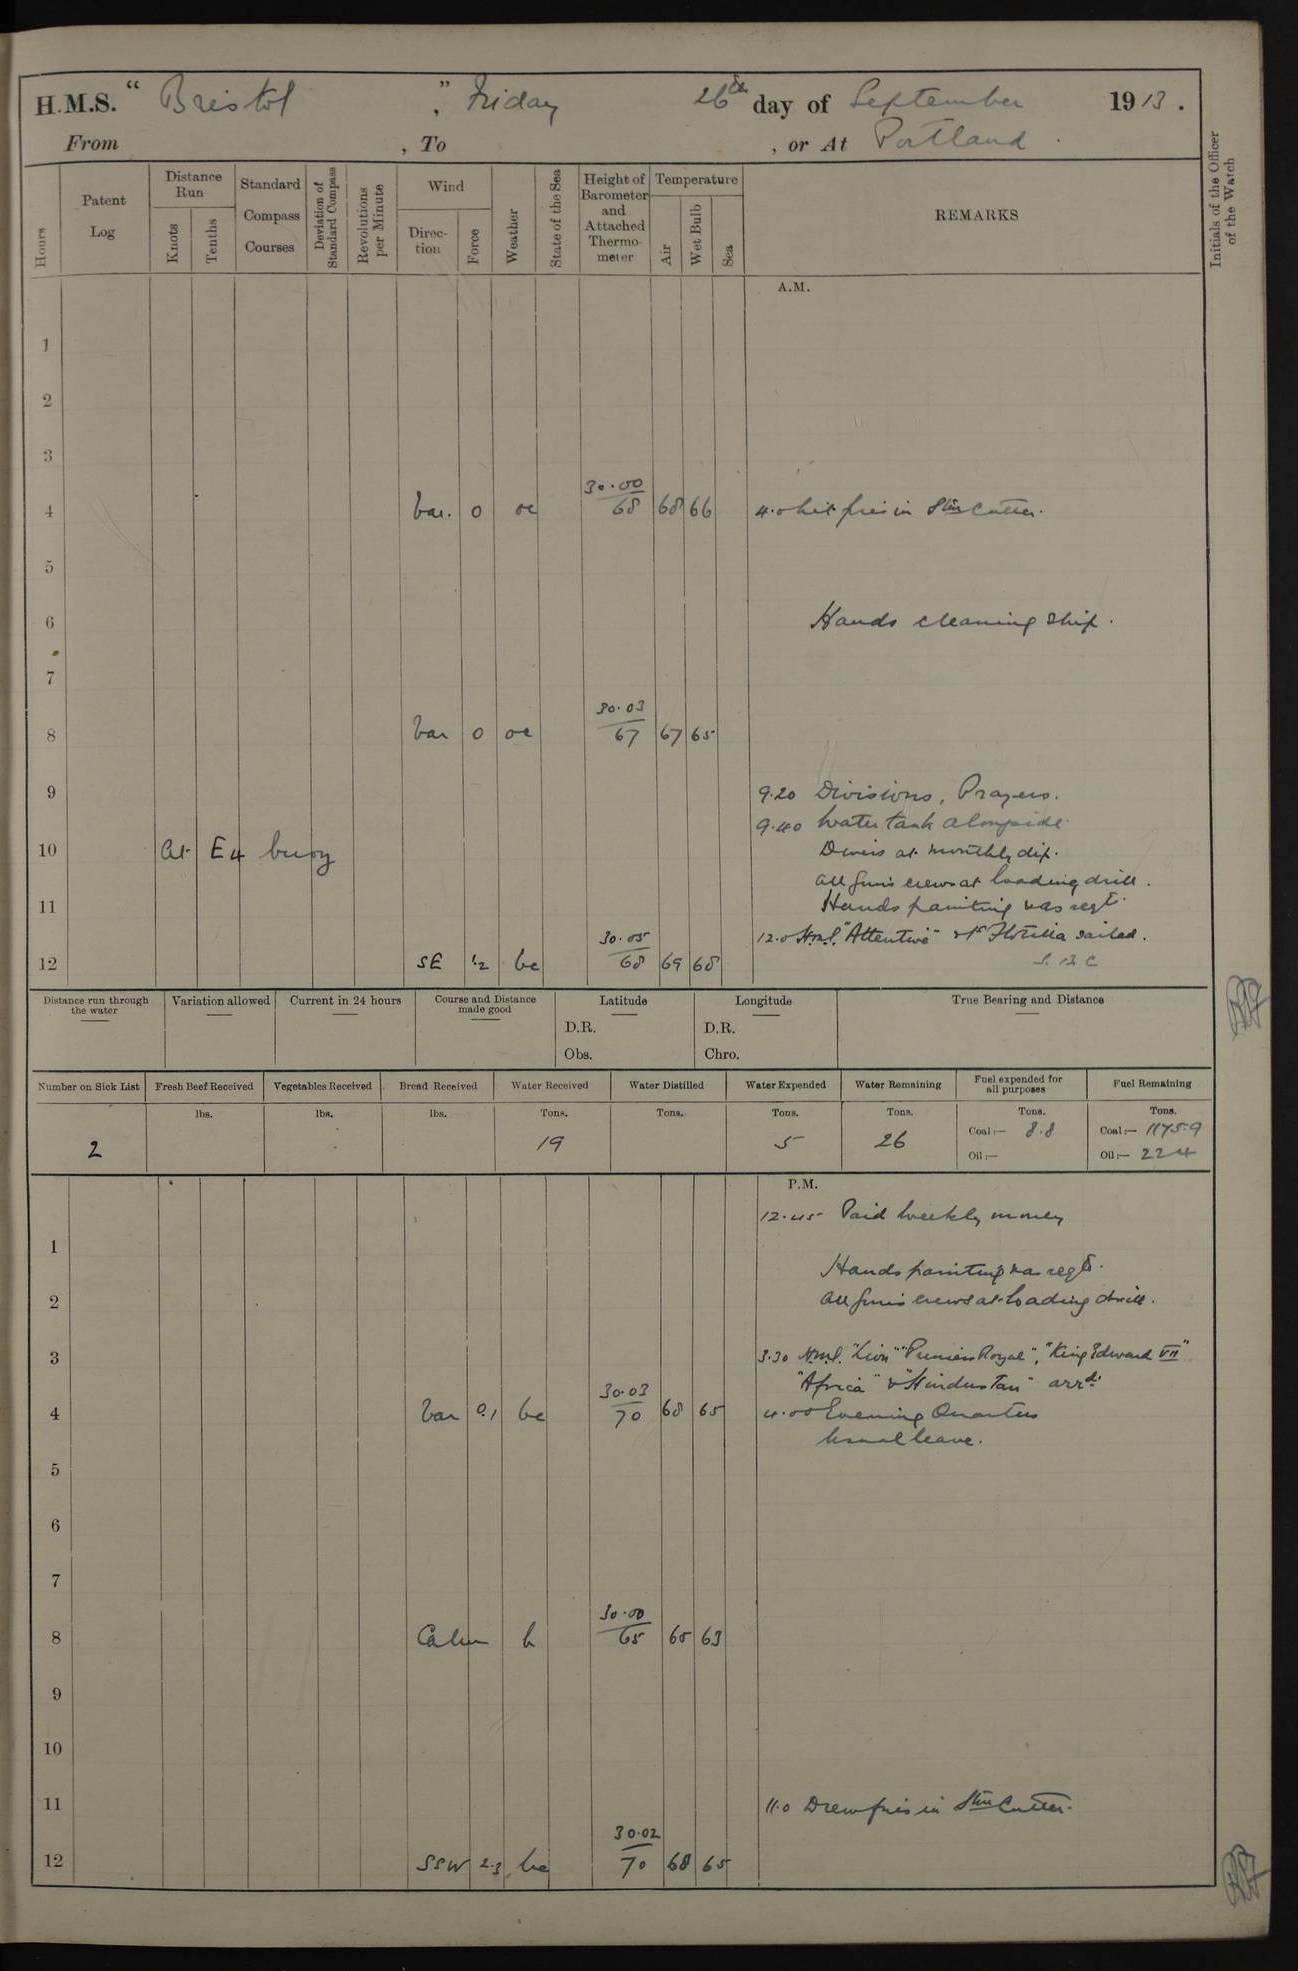 H.M.S. “ Bristol ”, Friday 26th day of September 1913.
From , To , or At Portland.
Hours
Patent Log
Distance Run
Knots
Tenths
Standard Compass Courses
Deviation of Standard Compass
Revolutions per Minute
Wind
Direction
Force
Weather
State of the Sea
Height of Barometer and Attached Thermometer
Temperature
Air
Wet Bulb
Sea
REMARKS
Initials of the Officer of the Watch
A.M.
1
2
3
4 Var. 0 oc 30.00 68 68 66 4.0 Lit fires in Stm Cutter.
5
6 Hands cleaning ship.
7
8 Var 0 oc 30.03 67 67 65
9 9.20 Divisions, Prayers.
9.40 Water tank alongside.
10 At E4 buoy Divers at monthly dip.
All guns crews at loading drill.
11 Hands painting & as reqd.
12.0 H.M.S. "Attentive" & 1st Flotilla sailed.
12 SE 1.2 bc 30.05 68 69 68 S. B C
Distance run through the water
Variation allowed
Current in 24 hours
Course and Distance made good
Latitude
D.R.
Obs.
Longitude
D.R.
Chro.
True Bearing and Distance
Number on Sick List
Fresh Beef Received
Vegetables Received
Bread Received
Water Received
Water Distilled
Water Expended
Water Remaining
Fuel expended for all purposes
Fuel Remaining
lbs. lbs. lbs. Tons. Tons. Tons. Tons. Tons. Tons.
2 19 5 26 Coal:— 8.8 Coal:— 1175.9
Oil:— Oil:— 224
P.M.
12.45 Paid weekly money
1
Hands painting & as reqd.
2 All guns crews at loading drill.
3 3.30 H.M.S. "Lion" "Princess Royal", "King Edward VII"
"Africa" & "Hindustan" arrd.
4 Var 0.1 bc 30.03 70 68 65 4.00 Evening Quarters
Usual leave.
5
6
7
8 Calm b 30.00 65 65 63
9
10
11 11.0 Drew fires in Stm Cutter.
12 SSW 2.3 bc 30.02 70 68 65